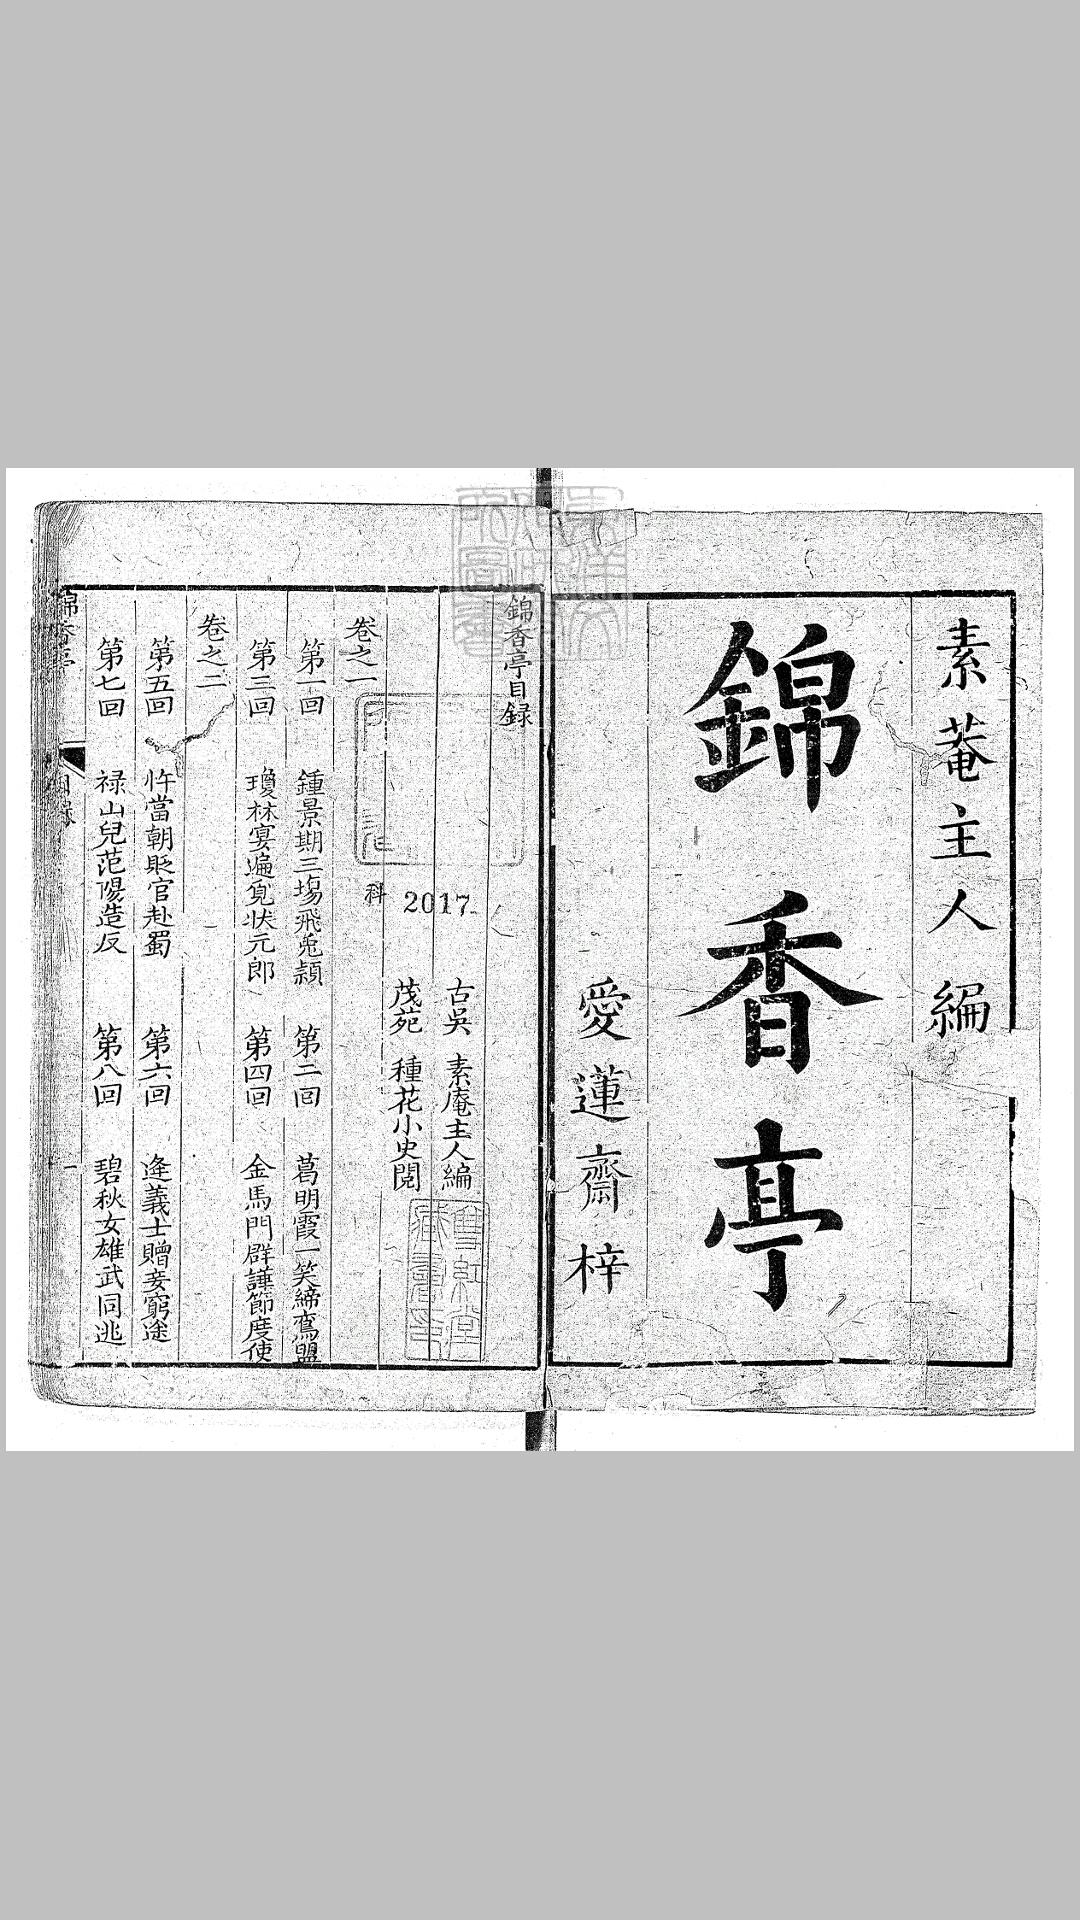 素菴主人編
錦香亭
愛蓮齋梓
錦香亭目録
古吳 素庵主人編
茂苑 種花小史閱
科 2017
卷之一
第一回 鍾景期三塲飛兎頴 第二回 葛明霞一笑締鴛盟
第三回 瓊林宴遍覓状元郎 第四回 金馬門群譁節度使
卷之二
第五回 忤當朝貶官赴蜀 第六回 逢義士贈妾窮途
第七回 禄山兒范陽造反 第八回 碧秋女雄武同逃
錦香亭 目録 一